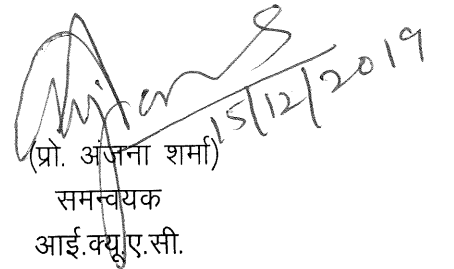 15/12/2019
(प्रो. अंजना शर्मा)
समन्वयक
आई.क्यू.ए.सी.